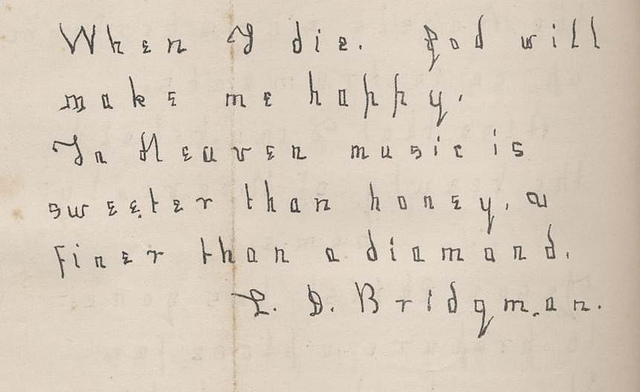 When I die. God will
make me happy.
In Heaven music is
sweeter than honey, a
finer than a diamond.
L. D. Bridgman.